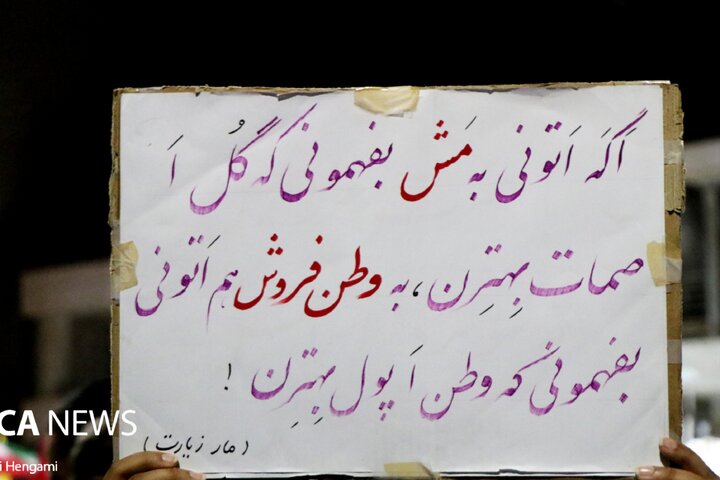 اَگَه اَتونی به مَش بفهمونی که گُل اَ
صمات بِهتِرن، به وطن فروش هم اَتونی
بفهمونی که وطن اَ پول بِهتِرن !
(مار زیارت)
CA NEWS
i Hengami